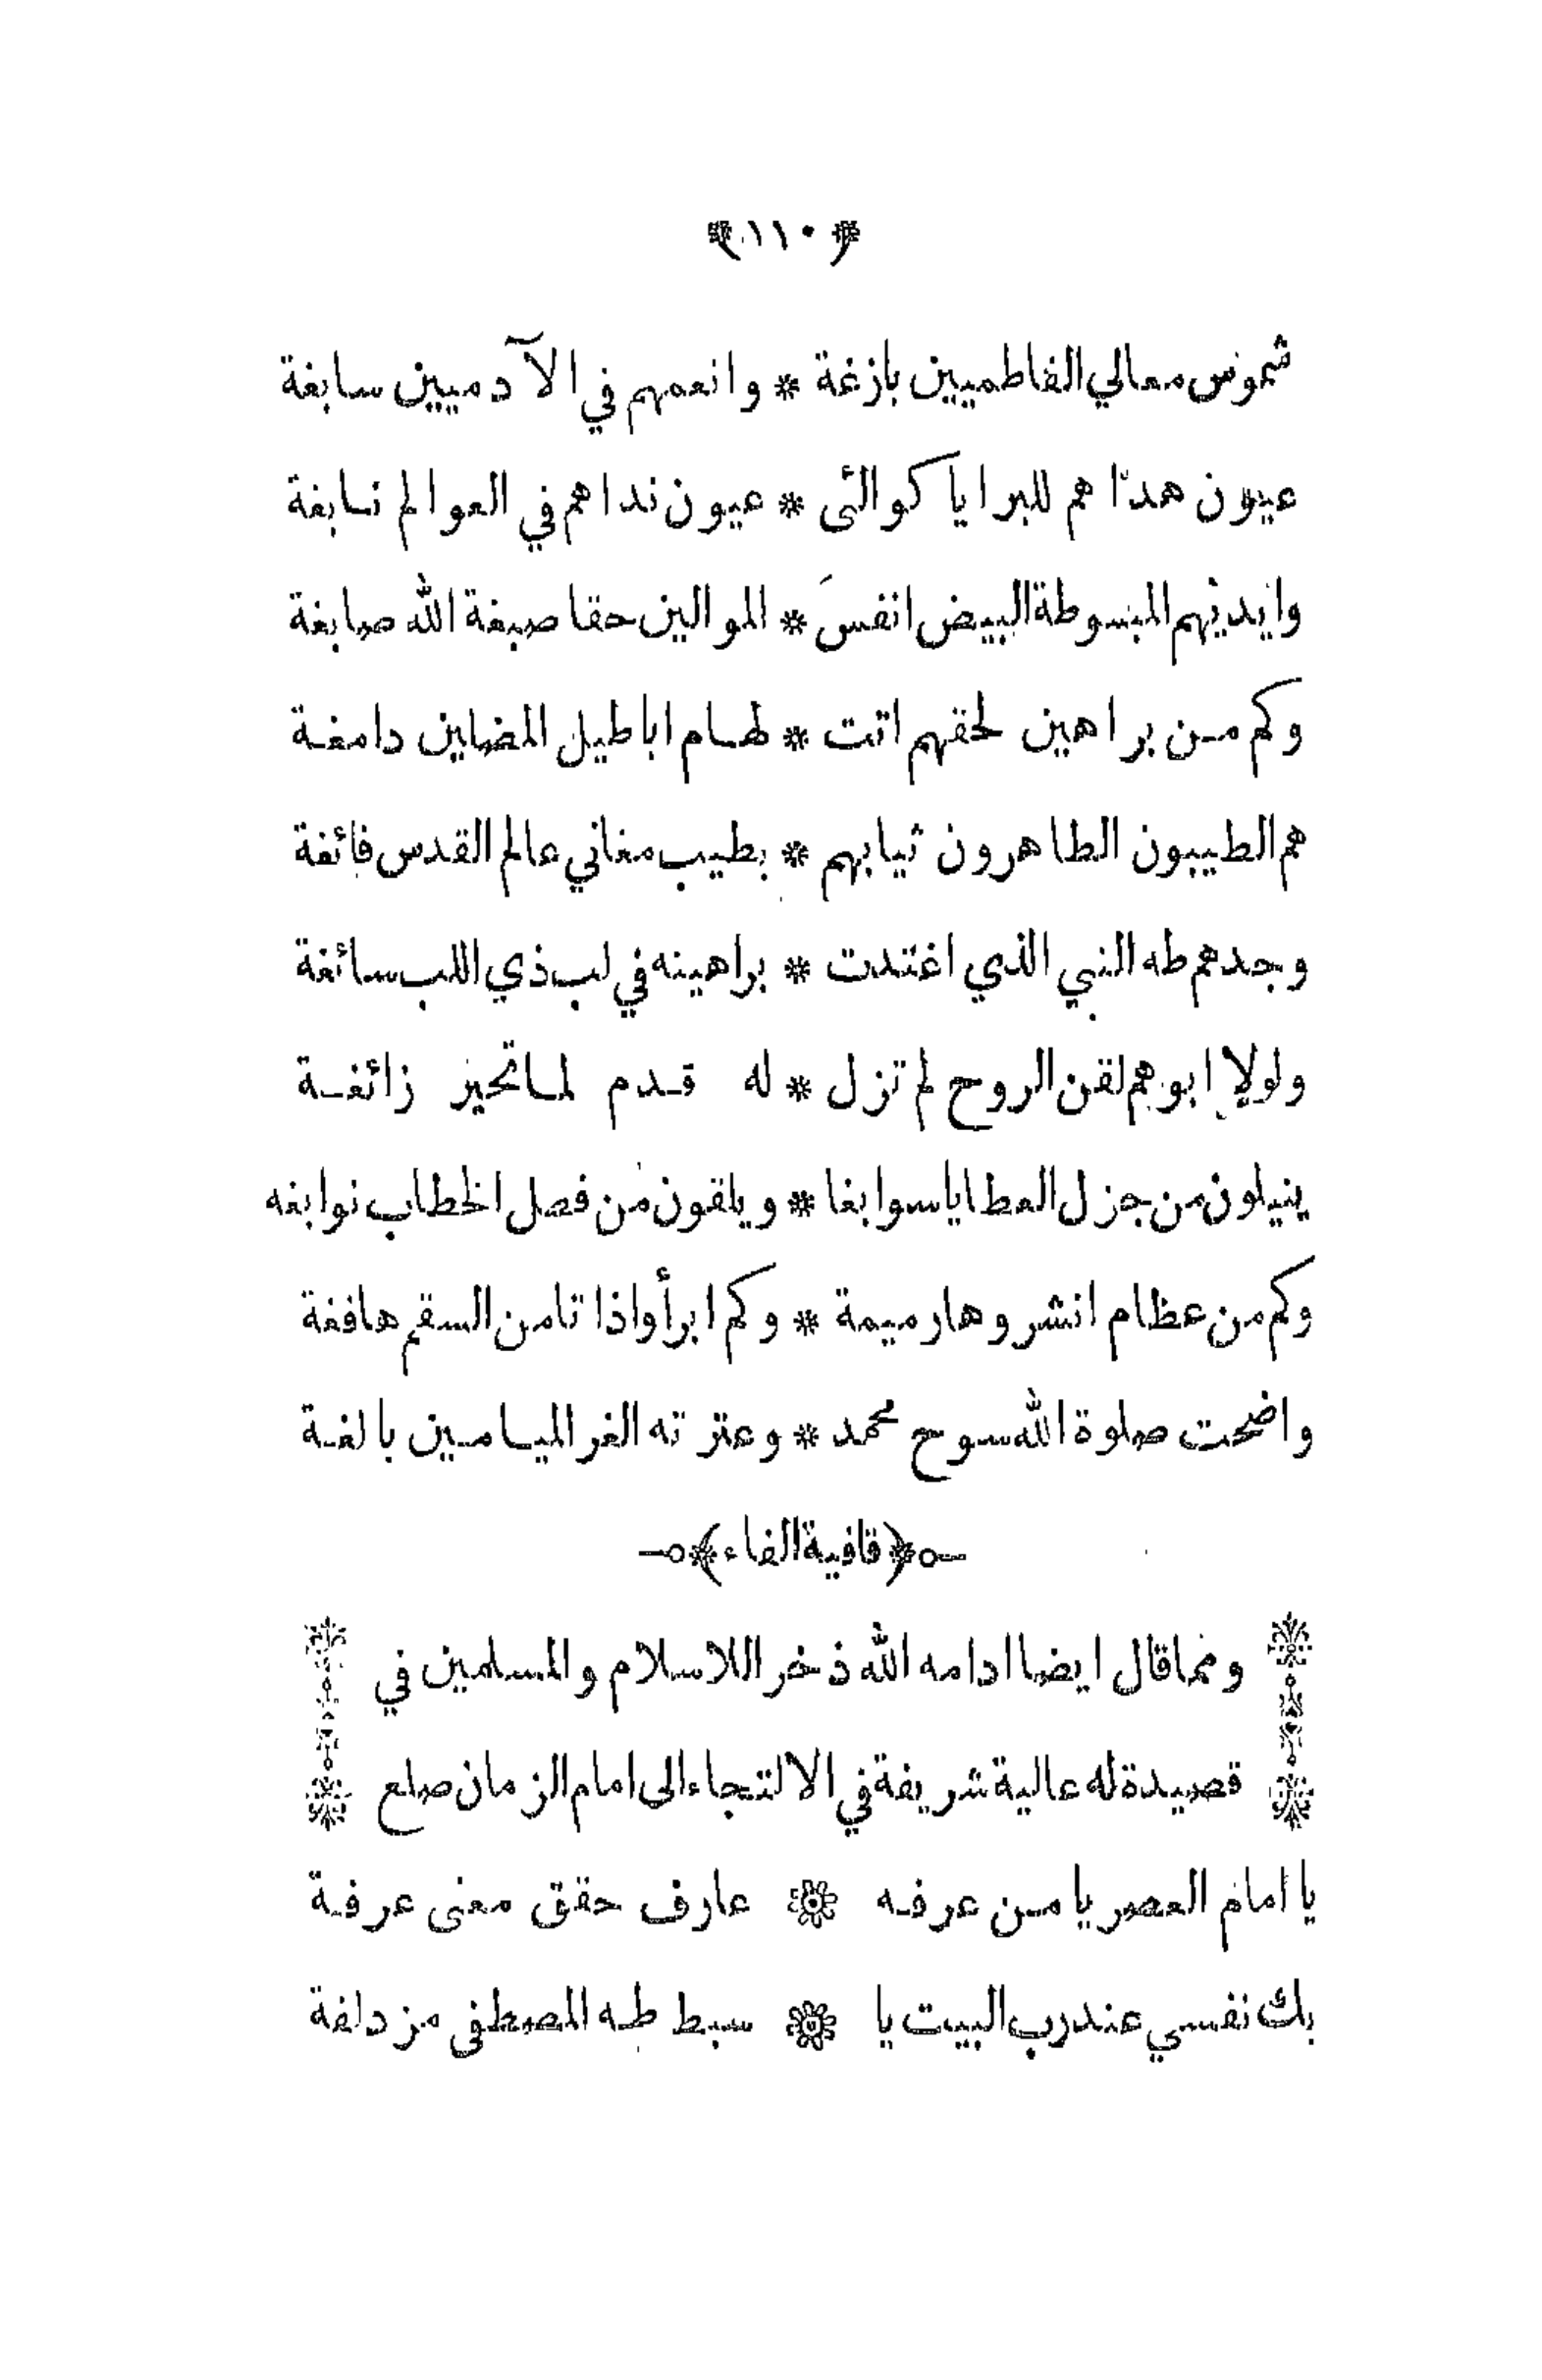 ﴿ ١١٠ ﴾
شموس معالي الفاطميين بازغة * وانعمهم في الآدميين سابغة
عيون هداهم للبرايا كوالئى * عيون نداهم في العوالم نابغة
وايديهم المبسوطة البيض انفسَ * الموالين حقا صبغة الله صابغة
وكم من براهين لحقهم اتت * لهام اباطيل المضلين دامغة
هم الطيبون الطاهرون ثيابهم * بطيب مغاني عالم القدس فائغة
وجدهم طه النبي الذي اغتدت * براهينه في لب ذي اللب سائغة
ولولا ابوهم لقن الروح لم تزل * له قدم لما تحيز زائغة
ينيلون من جزل العطايا سوابغا * ويلقون من فصل الخطاب نوابغه
وكم من عظام انشروها رميمة * وكم ابرأوا ذا تا من السقم هافغة
واضحت صلوة الله سوح محمد * وعترته الغر الميامين بالغة
﴿ قافية الفاء ﴾
ومما قال ايضا ادامه الله ذخر اللاسلام والمسلمين في
قصيدة له عالية شريفة في الالتجاء الى امام الزمان صلع
يا امام العصر يا من عرفه * عارف حقق معنى عرفة
بك نفسي عند رب البيت يا * سبط طه المصطفى مزدلفة